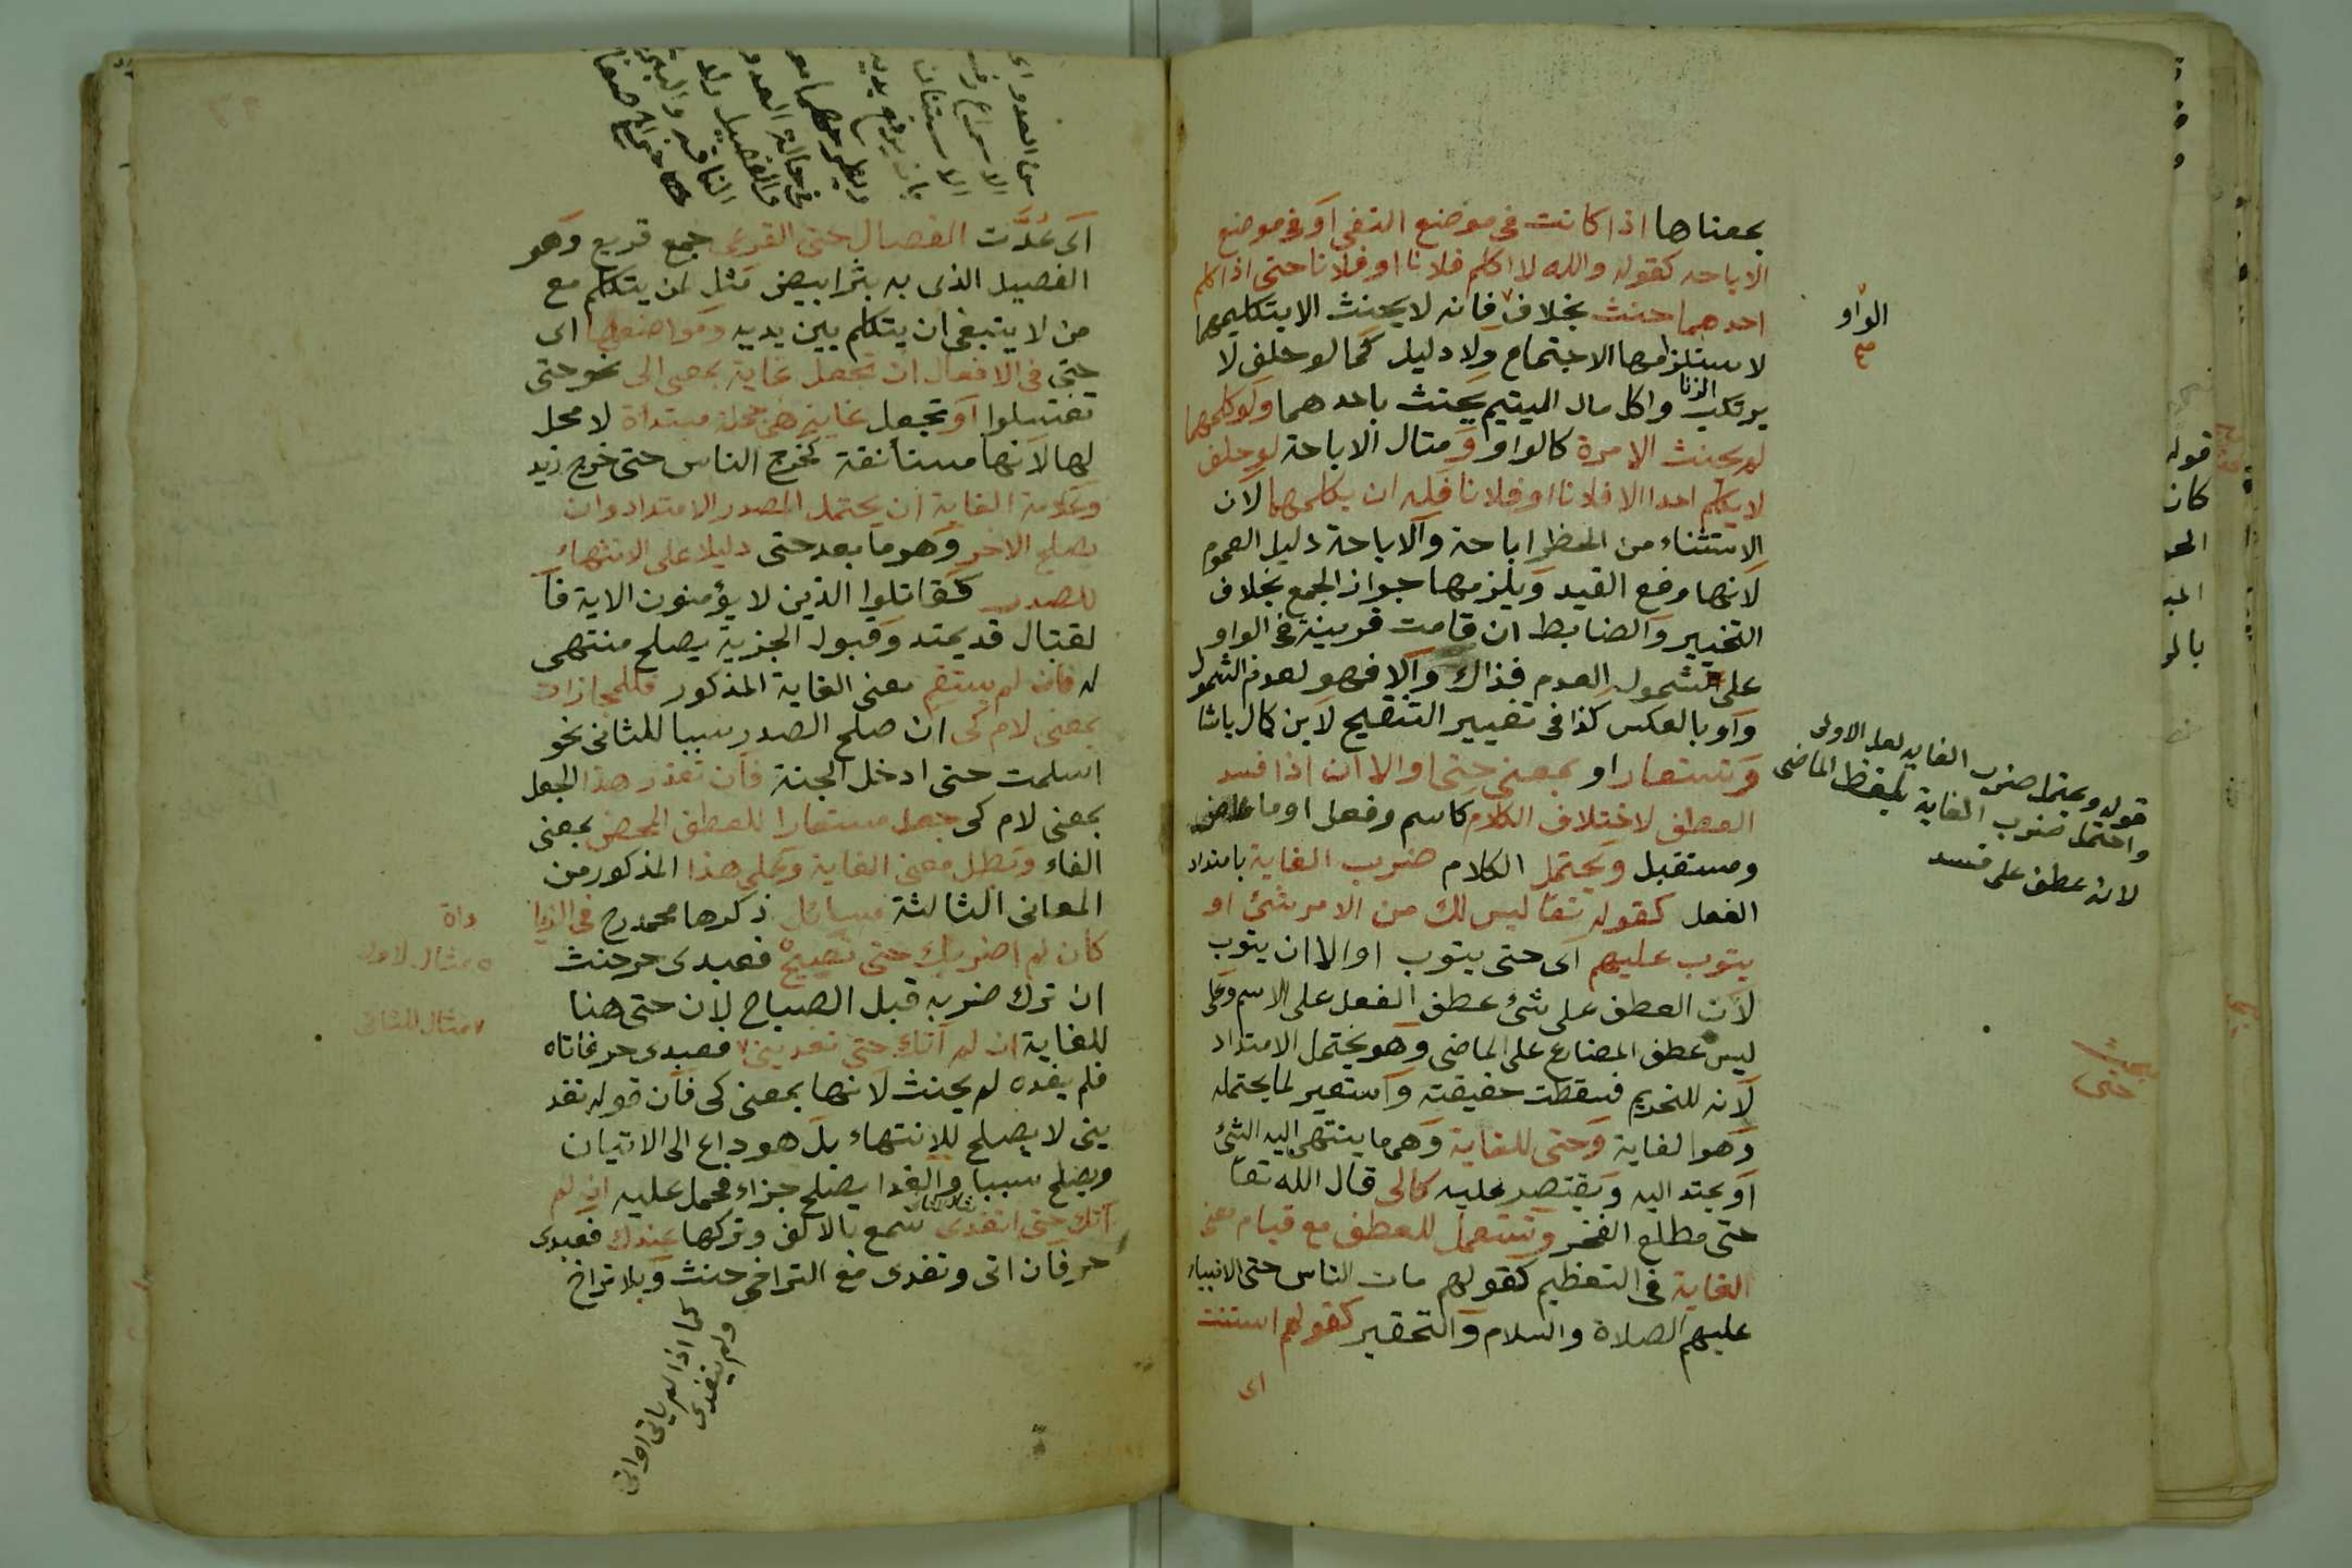 بمعناها اذا كانت فى موضع النفى او فى موضع
الاباحه كقوله والله لا اكلم فلانا او فلانا حتى اذا كلم
احدهما حنث بخلاف فانه لا يحنث الا بتكليمهما
الواو
صح
لاستلزامها الاجتماع ولا دليل كما لو حلف لا
يرتكب الزنا واكل مال اليتيم يحنث باحدهما ولو كلمهما
لم يحنث الا مرة كالواو ومثال الاباحة لو حلف
لا يكلم احدا الا فلانا او فلانا فله ان يكلمهما لان
الاستثناء من الحظر اباحة والاباحة دليل العموم
لانها رفع القيد ويلزمها جواز الجمع بخلاف
التخيير والضابط ان قامت قرينة فى الواو
على شمول العدم فذاك والا فهو لعدم الشمول
واو بالعكس كذا فى تغيير التنقيح لابن كمال باشا
وتستعار او بمعنى حتى او الا ان اذا فسد
العطف لاختلاف الكلام كاسم وفعل او ماض
ومستقبل ويحتمل الكلام ضرب الغاية بامتداد
الفعل كقوله تعا ليس لك من الامر شئ او
يتوب عليهم اى حتى يتوب او الا ان يتوب
لان العطف على شئ عطف الفعل على الاسم وعلى
ليس عطف المضارع على الماضى وهو يحتمل الامتداد
لانه للتحريم فسقطت حقيقته واستعير لما يحتمله
وهو الغاية وحتى للغاية وهى ما ينتهى اليه الشئ
او يمتد اليه ويقتصر عليه كالى قال الله تعا
حتى مطلع الفجر وتستعمل للعطف مع قيام معنى
الغاية فى التعظيم كقولهم مات الناس حتى الانبياء
عليهم الصلاة والسلام والتحقير كقولهم استنت
اى
قوله ويحتمل ضرب الغاية لعل الاولى
واحتمل ضرب الغاية بلفظ الماضى
لانه عطف على فسد
حتى
اى عدّت الفصال حتى القرعى جمع قريع وهو
الفصيل الذى به بثر ابيض مثل لمن يتكلم مع
من لا ينبغى ان يتكلم بين يديه ومواضعها اى
حتى فى الافعال ان تجعل غاية بمعنى الى نحو حتى
تغتسلوا او تجعل غاية هى جملة مبتداة لا محل
لها لانها مستأنفة كخرج الناس حتى خرج زيد
وعلامة الغاية ان يحتمل الصدر الامتداد وان
يصلح الاخر وهو ما بعد حتى دليلا على الانتهاء
للصدر كقاتلوا الذين لا يؤمنون الاية فا
لقتال قد يمتد وقبول الجزية يصلح منتهى
له فان لم يستقم معنى الغاية المذكور فللمجازات
بمعنى لام كى ان صلح الصدر سببا للثانى نحو
اسلمت حتى ادخل الجنة فان تعذر هذا الجعل
بمعنى لام كى جعل مستعارا للعطف المحض بمعنى
الفاء وبطل معنى الغاية وعلى هذا المذكور من
المعانى الثالثة مسائل ذكرها محمد رح فى الزيا
كان لم اضربك حتى تصيح فعبدى حر حنث
ان ترك ضربه قبل الصياح لان حتى هنا
للغاية ان لم آتك حتى تغدينى فعبدى حر فاتاه
فلم يغده لم يحنث لانها بمعنى كى فان قوله تغد
ينى لا يصلح للانتهاء بل هو داع الى الاتيان
ويصلح سببا والغدا يصلح جزاء فحمل عليه ان لم
آتك حتى اتغدى سمع بالالف وتركها عندك فعبدى
حر فان اتى وتغدى مع التراخى حنث وبلا تراخ
مثال الاول
مثال للثانى
كما اذا لم ياتى او اتى
ولم يتغدى